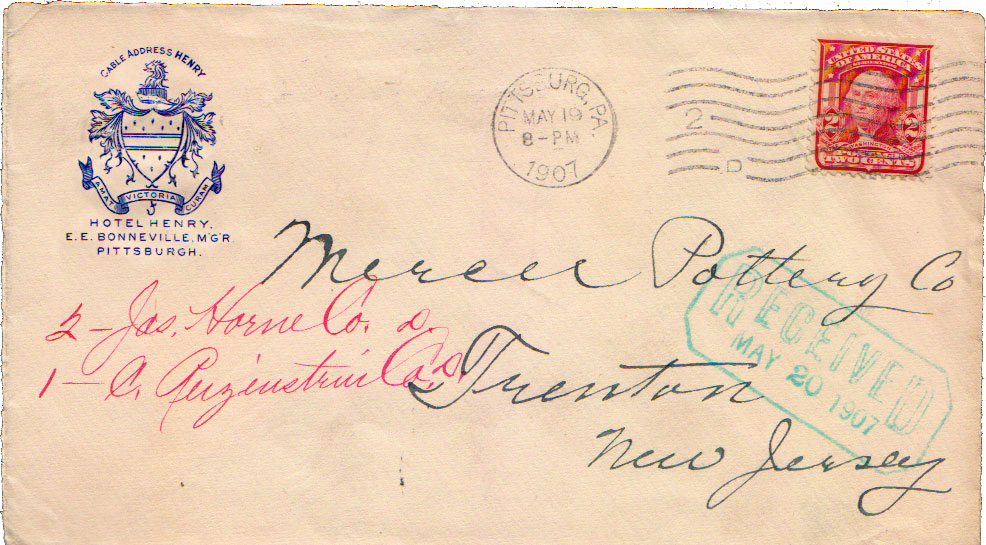 CABLE ADDRESS HENRY
AMAT VICTORIA CURAM
HOTEL HENRY.
E. E. BONNEVILLE, M'G'R.
PITTSBURGH.
PITTSBURG, PA.
MAY 19
8-PM
1907
2
D
UNITED STATES
OF AMERICA
WASHINGTON
2 2
TWO CENTS
Mercer Pottery Co
Trenton
New Jersey
2 - Jas. Horne Co.
1 - C. Reizenstein Co.
RECEIVED
MAY 20 1907